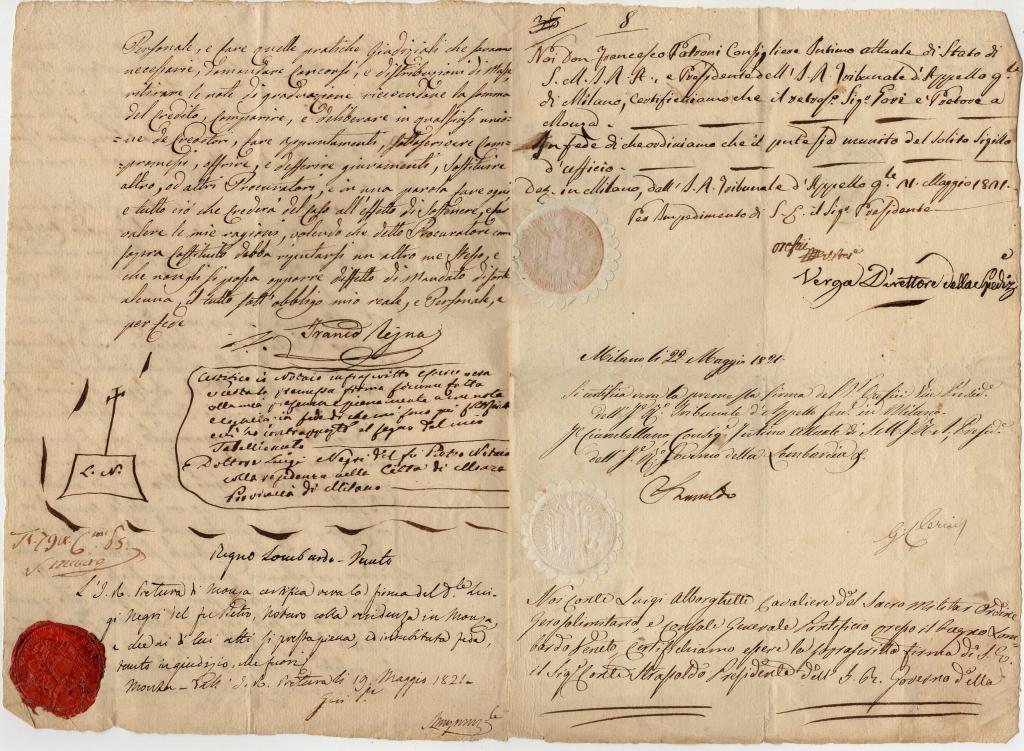 Personale, e fare quelle pratiche Giudiziali che saranno
necessarie, domandare Concorsi, e distribuzioni di Massa
ritirare le note di graduazione riscuotere la somma
del Credito, Comparire, e deliberare in qualsiasi unio=
=ne de Creditori, fare appuntamenti, sottoscrivere Com=
=promessi, offrire, e deferire giuramenti, sostituire
altro, od altri Procuratori, e in una parola fare ogni
e tutto ciò che crederà del caso all'effetto di Sostenere, e far
valere le mie ragioni, volendo che detto Procuratore com
sopra Costituito debba riputarsi un altro me stesso, e
che non gli si possa opporre diffetto di Mandato di sorte
alcuna, il tutto sott'obbligo mio reale, e Personale, e
per fede
Franco Reyna
Certifico io Notaio infrascritto essere vera
la premessa firma
alla mia presenza
in fede di che mi sono qui sottoscritto
ed ho contrapposto il segno del mio
Tabellionato
Dottore Luigi Negri del fu Pietro Notaio
colla residenza nella Città di Monza
Provincia di Milano
L. N.
Regno Lombardo-Veneto
L'I. R. Pretura di Monza certifica vera la firma del D.r Lui-
gi Negri del fu Pietro, Notaro colla residenza in Monza,
e che ai di lui atti si presta piena, ed indubitata fede,
tanto in giudizio, che fuori
Monza - Dall'I. R. Pretura li 19 Maggio 1821-
36 8
Noi Don Francesco Patroni Consigliere Intimo attuale di Stato di
S. M. I. R. A., e Presidente dell'I. R. Tribunale d'Appello g.le
di Milano, certifichiamo che il retros.o Sig.r Fovi e Pretore a
Monza.
In fede di che ordiniamo che il p.nte sia munito del solito Sigillo
d'ufficio.
Dat. in Milano, dall'I. R. Tribunale d'Appello g.le 21. Maggio 1821.
Per Impedimento di S. E. il Sig.r Presidente
Orefici
Verga Direttore della Spediz.e
Milano li 22 Maggio 1821.
Si certifica vera la premessa firma del S.r Orefici Vice Presid.e
dell'I. R. Tribunale d'Appello Gen. in Milano.
Il Ciambellano Consig.r Intimo attuale di S. M. I. R. A., Presid.e
dell'I. R. Governo della Lombardia &.
Strasoldo
Noi Conte Luigi Alborghetti Cavaliere del Sacro Militar Ordine
Gerosolimitano, e Console Generale Pontificio presso il Regno Lom=
bardo Veneto, Certifichiamo essere la soprascritta firma di S. E.
il Sig.r Conte Strasoldo Presidente dell'I. R. Governo della